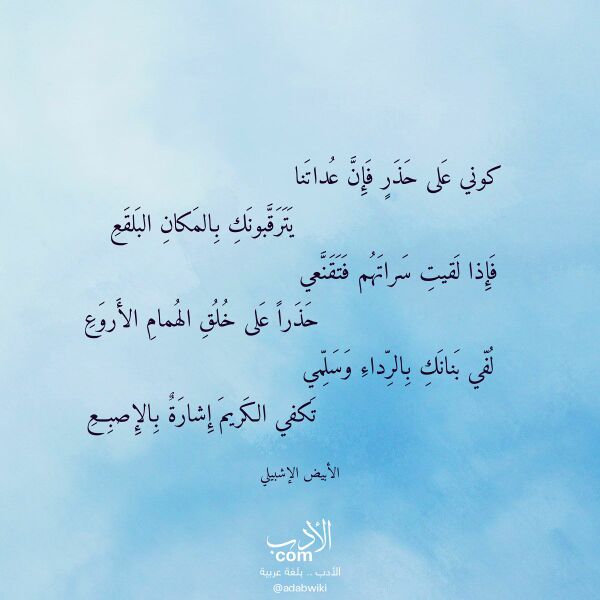 كوني عَلى حَذَرٍ فَإِنَّ عُداتَنا
يَتَرَقَّبونَكِ بِالمَكانِ البَلقَعِ
فَإِذا لَقيتِ سَراتَهُم فَتَقَنَّعي
حَذَراً عَلى خُلُقِ الهُمامِ الأَروَعِ
لُفّي بَنانَكِ بِالرِّداءِ وَسَلِّمي
تَكفي الكَريمَ إِشارَةٌ بِالإِصبِعِ
الأبيض الإشبيلي
الأدب
com
الأدب .. بلغة عربية
@adabwiki